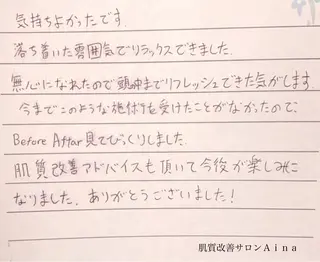 気持ちよかったです。
落ち着いた雰囲気でリラックスできました。
無心になれたので頭の中までリフレッシュできた気がします。
今までこのような施術を受けたことがなかったので、
Before After見てびっくりしました。
肌質改善アドバイスも頂いて今後が楽しみに
なりました。ありがとうございました！
肌質改善サロンAina